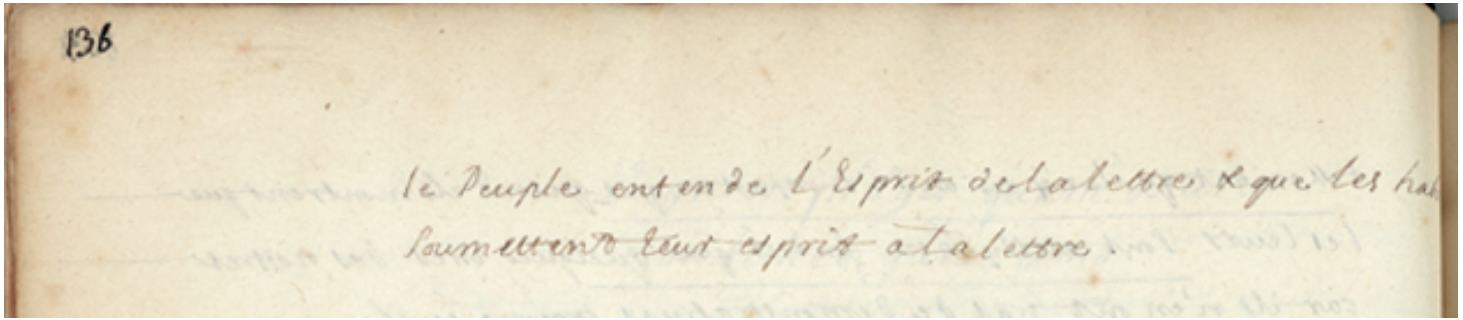 136
le Peuple entende l'Esprit de la lettre & que les hab
soumettent leur esprit à la lettre.